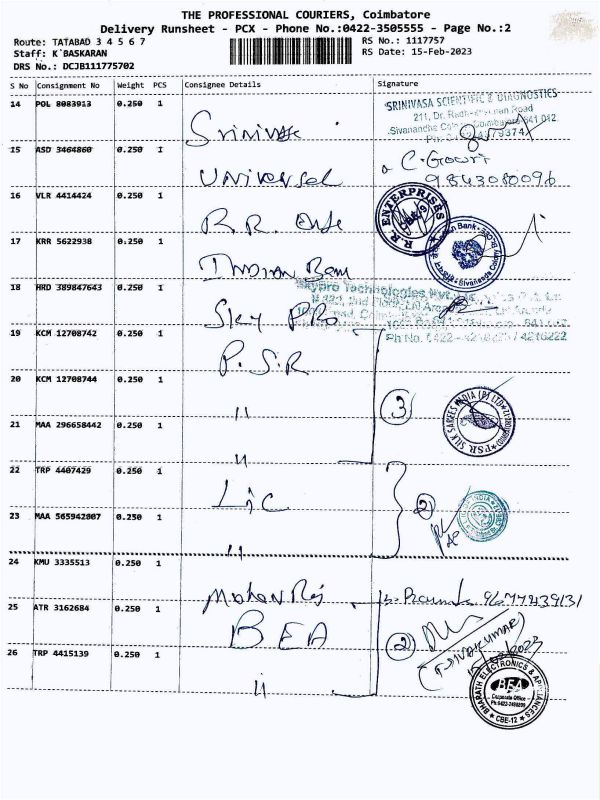 THE PROFESSIONAL COURIERS, Coimbatore
Delivery Runsheet - PCX - Phone No.:0422-3505555 - Page No.:2
Route: TATABAD 3 4 5 6 7
RS No.: 1117757
Staff: K`BASKARAN
RS Date: 15-Feb-2023
DRS No.: DCJB111775702
S No Consignment No Weight PCS Consignee Details Signature
14 POL 8083913 0.250 1
Srinivase
SRINIVASA SCIENTIFIC & DIAGNOSTICS
15 ASD 3464860 0.250 1
Universal
C. Gowri
9843080096
16 VLR 4414424 0.250 1
R.R.
R.R ENTERPRISES
17 KRR 5622938 0.250 1
Indian Bank
18 HRD 389847643 0.250 1
Sky Pro
Skypro Technologies
Ph No. 0422 - 4216222 / 4216222
19 KCM 12708742 0.250 1
P.S.R
20 KCM 12708744 0.250 1
"
3
PSR SILK SAREES INDIA (P) LTD
21 MAA 296658442 0.250 1
"
22 TRP 4407429 0.250 1
Lic
2
23 MAA 565942807 0.250 1
"
24 KMU 3335513 0.250 1
Mohan Raj
9677439131
25 ATR 3162684 0.250 1
BEA
2
(T. SIVAKUMAR)
15/02/2023
26 TRP 4415139 0.250 1
"
BHARATH ELECTRONICS & APPLIANCES
BEA
Corporate Office
CBE-12